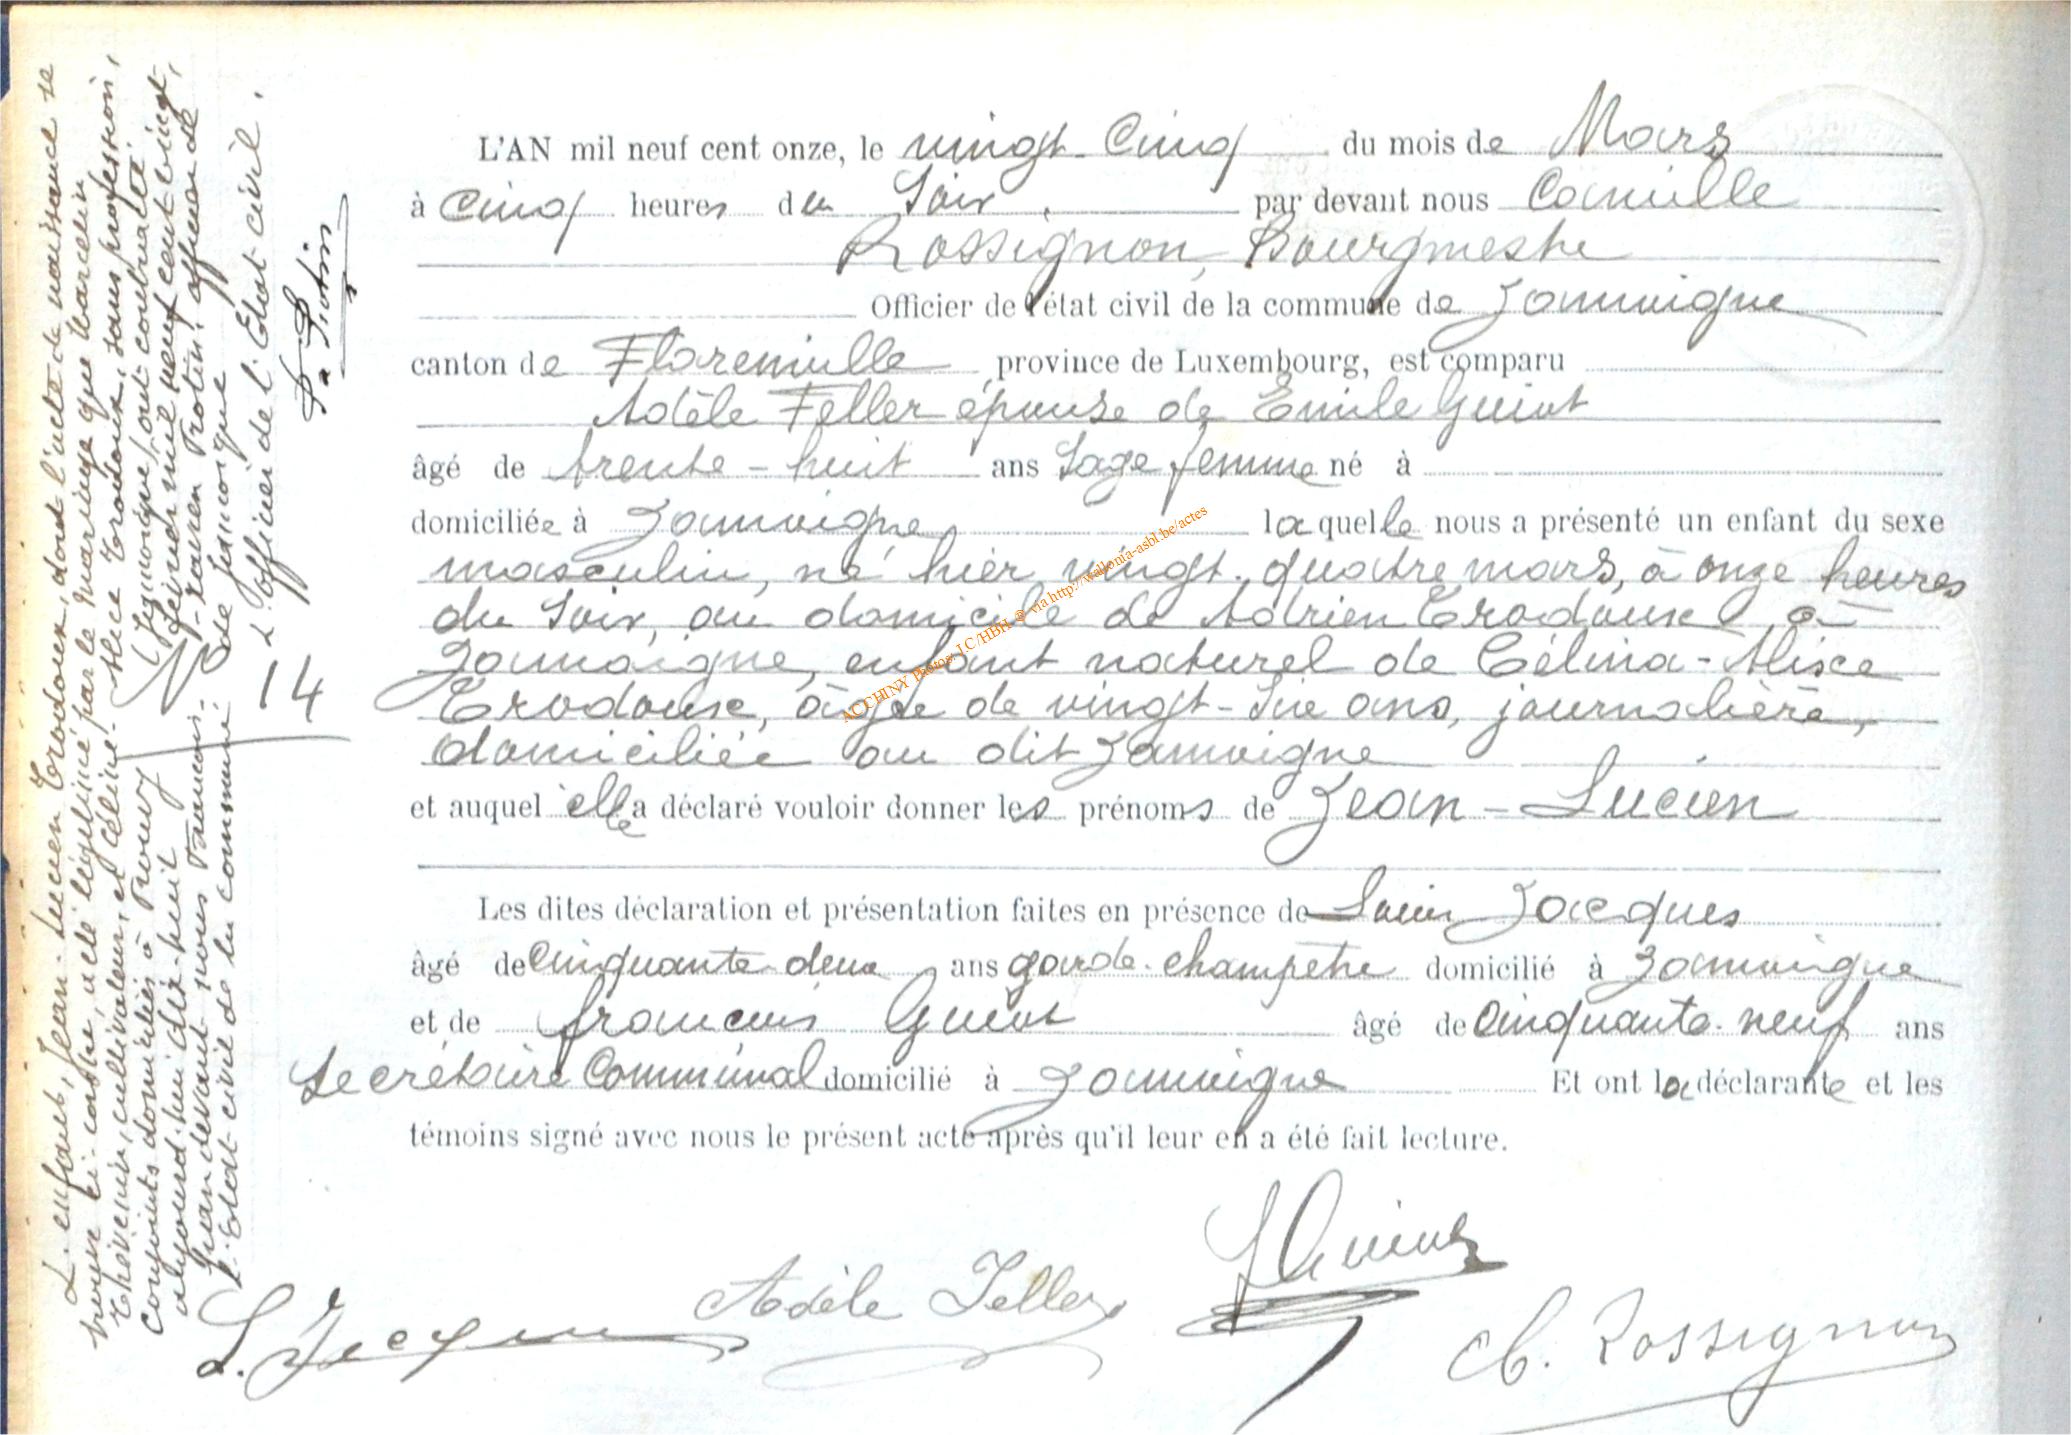 L'AN mil neuf cent onze, le vingt-cinq du mois de Mars
à cinq heures du Soir, par devant nous Camille
Rossignon, Bourgmestre
Officier de l'état civil de la commune de Jamoigne
canton de Florenville, province de Luxembourg, est comparu
Adèle Feller épouse de Emile Guiot
âgé de trente-huit ans Sage femme né à
domiciliée à Jamoigne laquelle nous a présenté un enfant du sexe
masculin, né hier vingt-quatre mars, à onze heures
du Soir, au domicile de Adrien Trodoux à
Jamoigne, enfant naturel de Célina-Alisce
Trodoux, âgée de vingt-six ans, journalière,
domiciliée au dit Jamoigne
et auquel elle a déclaré vouloir donner les prénoms de Jean-Lucien
Les dites déclaration et présentation faites en présence de Jacques
âgé de cinquante-deux ans garde-champêtre domicilié à Jamoigne
et de françois Guiot âgé de cinquante-neuf ans
Secrétaire Communal domicilié à Jamoigne Et ont la déclarante et les
témoins signé avec nous le présent acte après qu'il leur en a été fait lecture.
L. Jacques Adèle Feller f Guiot C. Rossignon
N° 14
L'enfant, Jean-Lucien Trodoux, dont l'acte de naissance se
trouve ci-contre, a été légitimé par le mariage que Marcelin
Thévenin, cultivateur, et Céline-Alice Trodoux, sans profession,
conjoints domiciliés à Prouvy (Jamoigne) ont contracté
aujourd'hui dix-huit février mil neuf cent vingt,
par devant nous François-Xavier Protin, officier de
l'Etat civil de la commune de Jamoigne
L'officier de l'Etat civil.
Protin
ACCHINY Photos: J.C/HBH ® via http://wallonia-asbl.be/actes